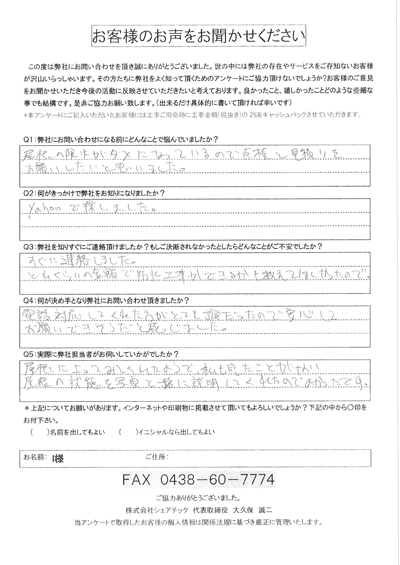 お客様のお声をお聞かせください
この度は弊社にお問い合わせを頂き誠にありがとうございました。世の中には弊社の存在やサービスをご存知ないお客様
が沢山いらっしゃいます。その方たちに弊社をよく知って頂くためのアンケートにご協力頂けないでしょうか?お客様のご意見
をお聞かせいただき今後の活動に反映させていただきたいと考えております。良かったこと、嬉しかったことどのような些細な
事でも結構です。是非ご協力お願い致します。(出来るだけ具体的に書いて頂ければ幸いです)
*本アンケートにご記入いただいたお客様には工事ご用命時に工事金額(税抜き)の 2%をキャッシュバックさせていただきます。
Q1:弊社にお問い合わせになる前にどんなことで悩んでいましたか?
屋根の防水がダメになっているので点検と見積りを
お願いしたいと思いました。
Q2:何がきっかけで弊社をお知りになりましたか?
Yahooで探しました。
Q3:弊社を知りすぐにご連絡頂けましたか?もしご決断されなかったとしたらどんなことがご不安でしたか?
すぐに連絡しました。
どれくらいの金額で防水工事ができるかを教えてほしかったので。
Q4:何が決め手となり弊社にお問い合わせ頂きましたか?
電話対応してくれた方がとても丁寧だったので安心して
お願いできそうだと感じました。
Q5:実際に弊社担当者がお伺いしていかがでしたか?
屋根に上ってみてくれたようで、私も見たことがない
屋根の状態を写真と一緒に説明してくれたのでよかったです。
*上記についてお願いがあります。インターネットや印刷物に掲載させて頂いてもよろしいでしょうか?下記の中から〇印を
お付け下さい。
( )名前を出してもよい ( )イニシャルなら出してもよい
お名前: I様 ご住所:
FAX 0438-60-7774
ご協力ありがとうございました。
株式会社シェアテック 代表取締役 大久保 誠二
当アンケートで取得したお客様の個人情報は関係法規に基づき厳正に管理いたします。